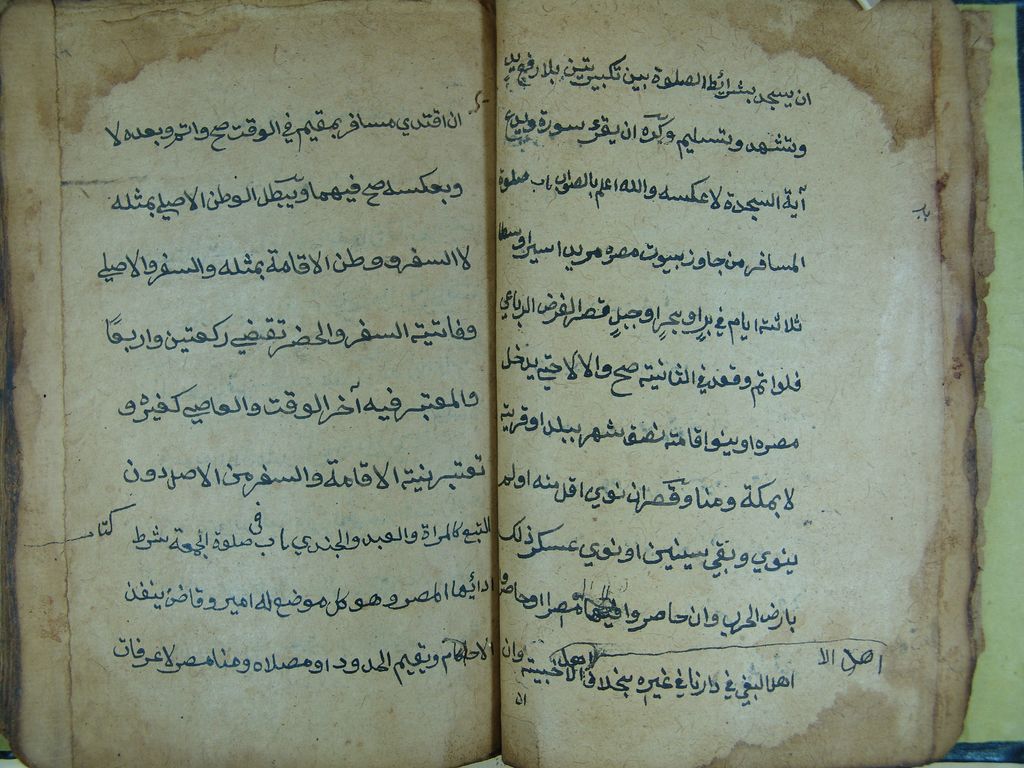 ان يسجد بشرائط الصلوة بين تكبيرتين بلا رفع يد
وتشهد وتسليم وكره ان يقرء سورة ويدع
آية السجدة لا عكسه والله اعلم بالصواب باب صلوة
المسافر من جاوز بيوت مصره مريدا سيرا وسطا
ثلاثة ايام في بر او بحر او جبل قصر الفرض الرباعي
فلو اتم وقعد في الثانية صح والا لا حتى يدخل
مصره او ينوا اقامة نصف شهر ببلد او قرية
لا بمكة ومنا وقصر ان نوي اقل منه او لم
ينوي وبقي سينين او نوي عسكر ذلك
بارض الحرب وان حاصروا فيها مصرا او حاصروا
اهل البغي في دارنا في غيره بخلاف اهل الاخبية
اهل الا
وان
ان اقتدي مسافر بمقيم في الوقت صح واتم وبعده لا
وبعكسه صح فيهما ويبطل الوطن الاصلي بمثله
لا السفر ووطن الاقامة بمثله والسفر والاصلي
وفائتية السفر والحضر تقضي ركعتين واربعا
والمعتبر فيه آخر الوقت والعاصي كغيره و
تعتبر نية الاقامة والسفر من الاصل دون
التبع كالمراة والعبد والجندي باب في صلوة الجمعة شرط
ادائها المصر وهو كل موضع له امير وقاض ينفذ
الاحكام ويقيم الحدود او مصلاه ومنا مصر لا عرفات